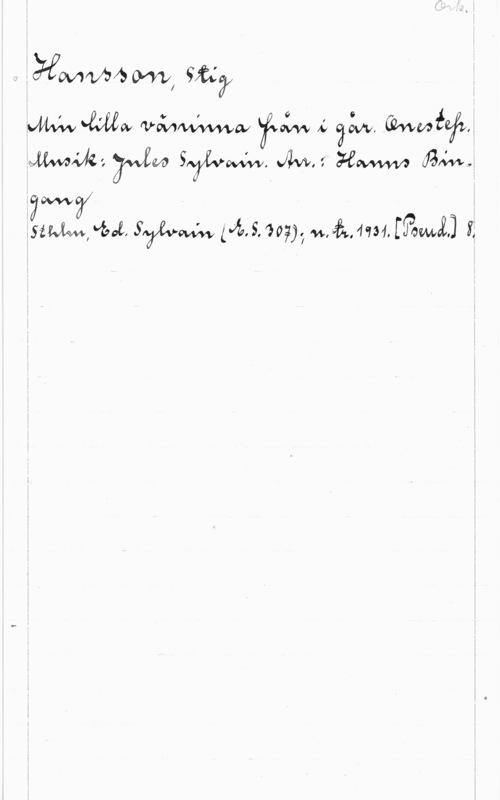 Ork.
Hansson, Stig
Min lilla väninna från i går. Onestep.
Musik: Jules Sylvain. Arr.: Hanns Bin-
gang
Sthlm, Ed. Sylvain (E.S. 307); n. tr. 1931. [Pseud.] 8.